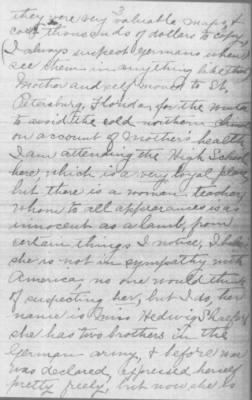 3
they were very valuable maps &
cost thousands of dollars to copy.
I always suspect germans when I
see them in anything like that
Mother and self moved to St.
Petersburg, Florida, for the winter
to avoid the cold northern
on account of Mother's health
I am attending the High School
here, which is a very loyal place
but there is a woman teacher
whom to all appearances is as
innocent as a lamb, from
certain things I notice, I
she is not in sympathy with
America, no one would think
of suspecting her, but I do, her
name is Miss Hedwig
she has two brothers in the
German army, & before war
was declared, expressed herself
pretty freely, but now she is